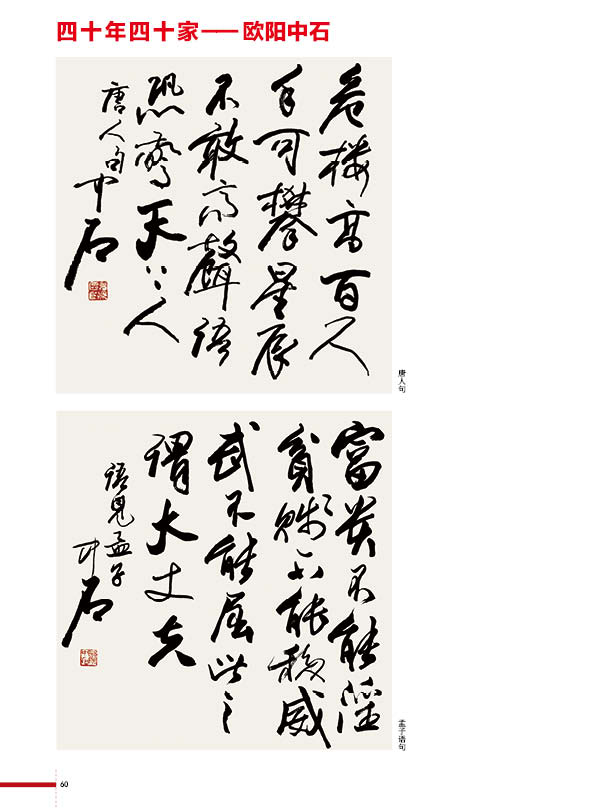 四十年四十家——欧阳中石
危楼高百尺
手可攀星辰
不敢高聲語
恐驚天上人
唐人句中石
唐人句
富贵不能淫
貧賤不能移威
武不能屈此之
謂大丈夫
語見孟子
中石
孟子语句
60